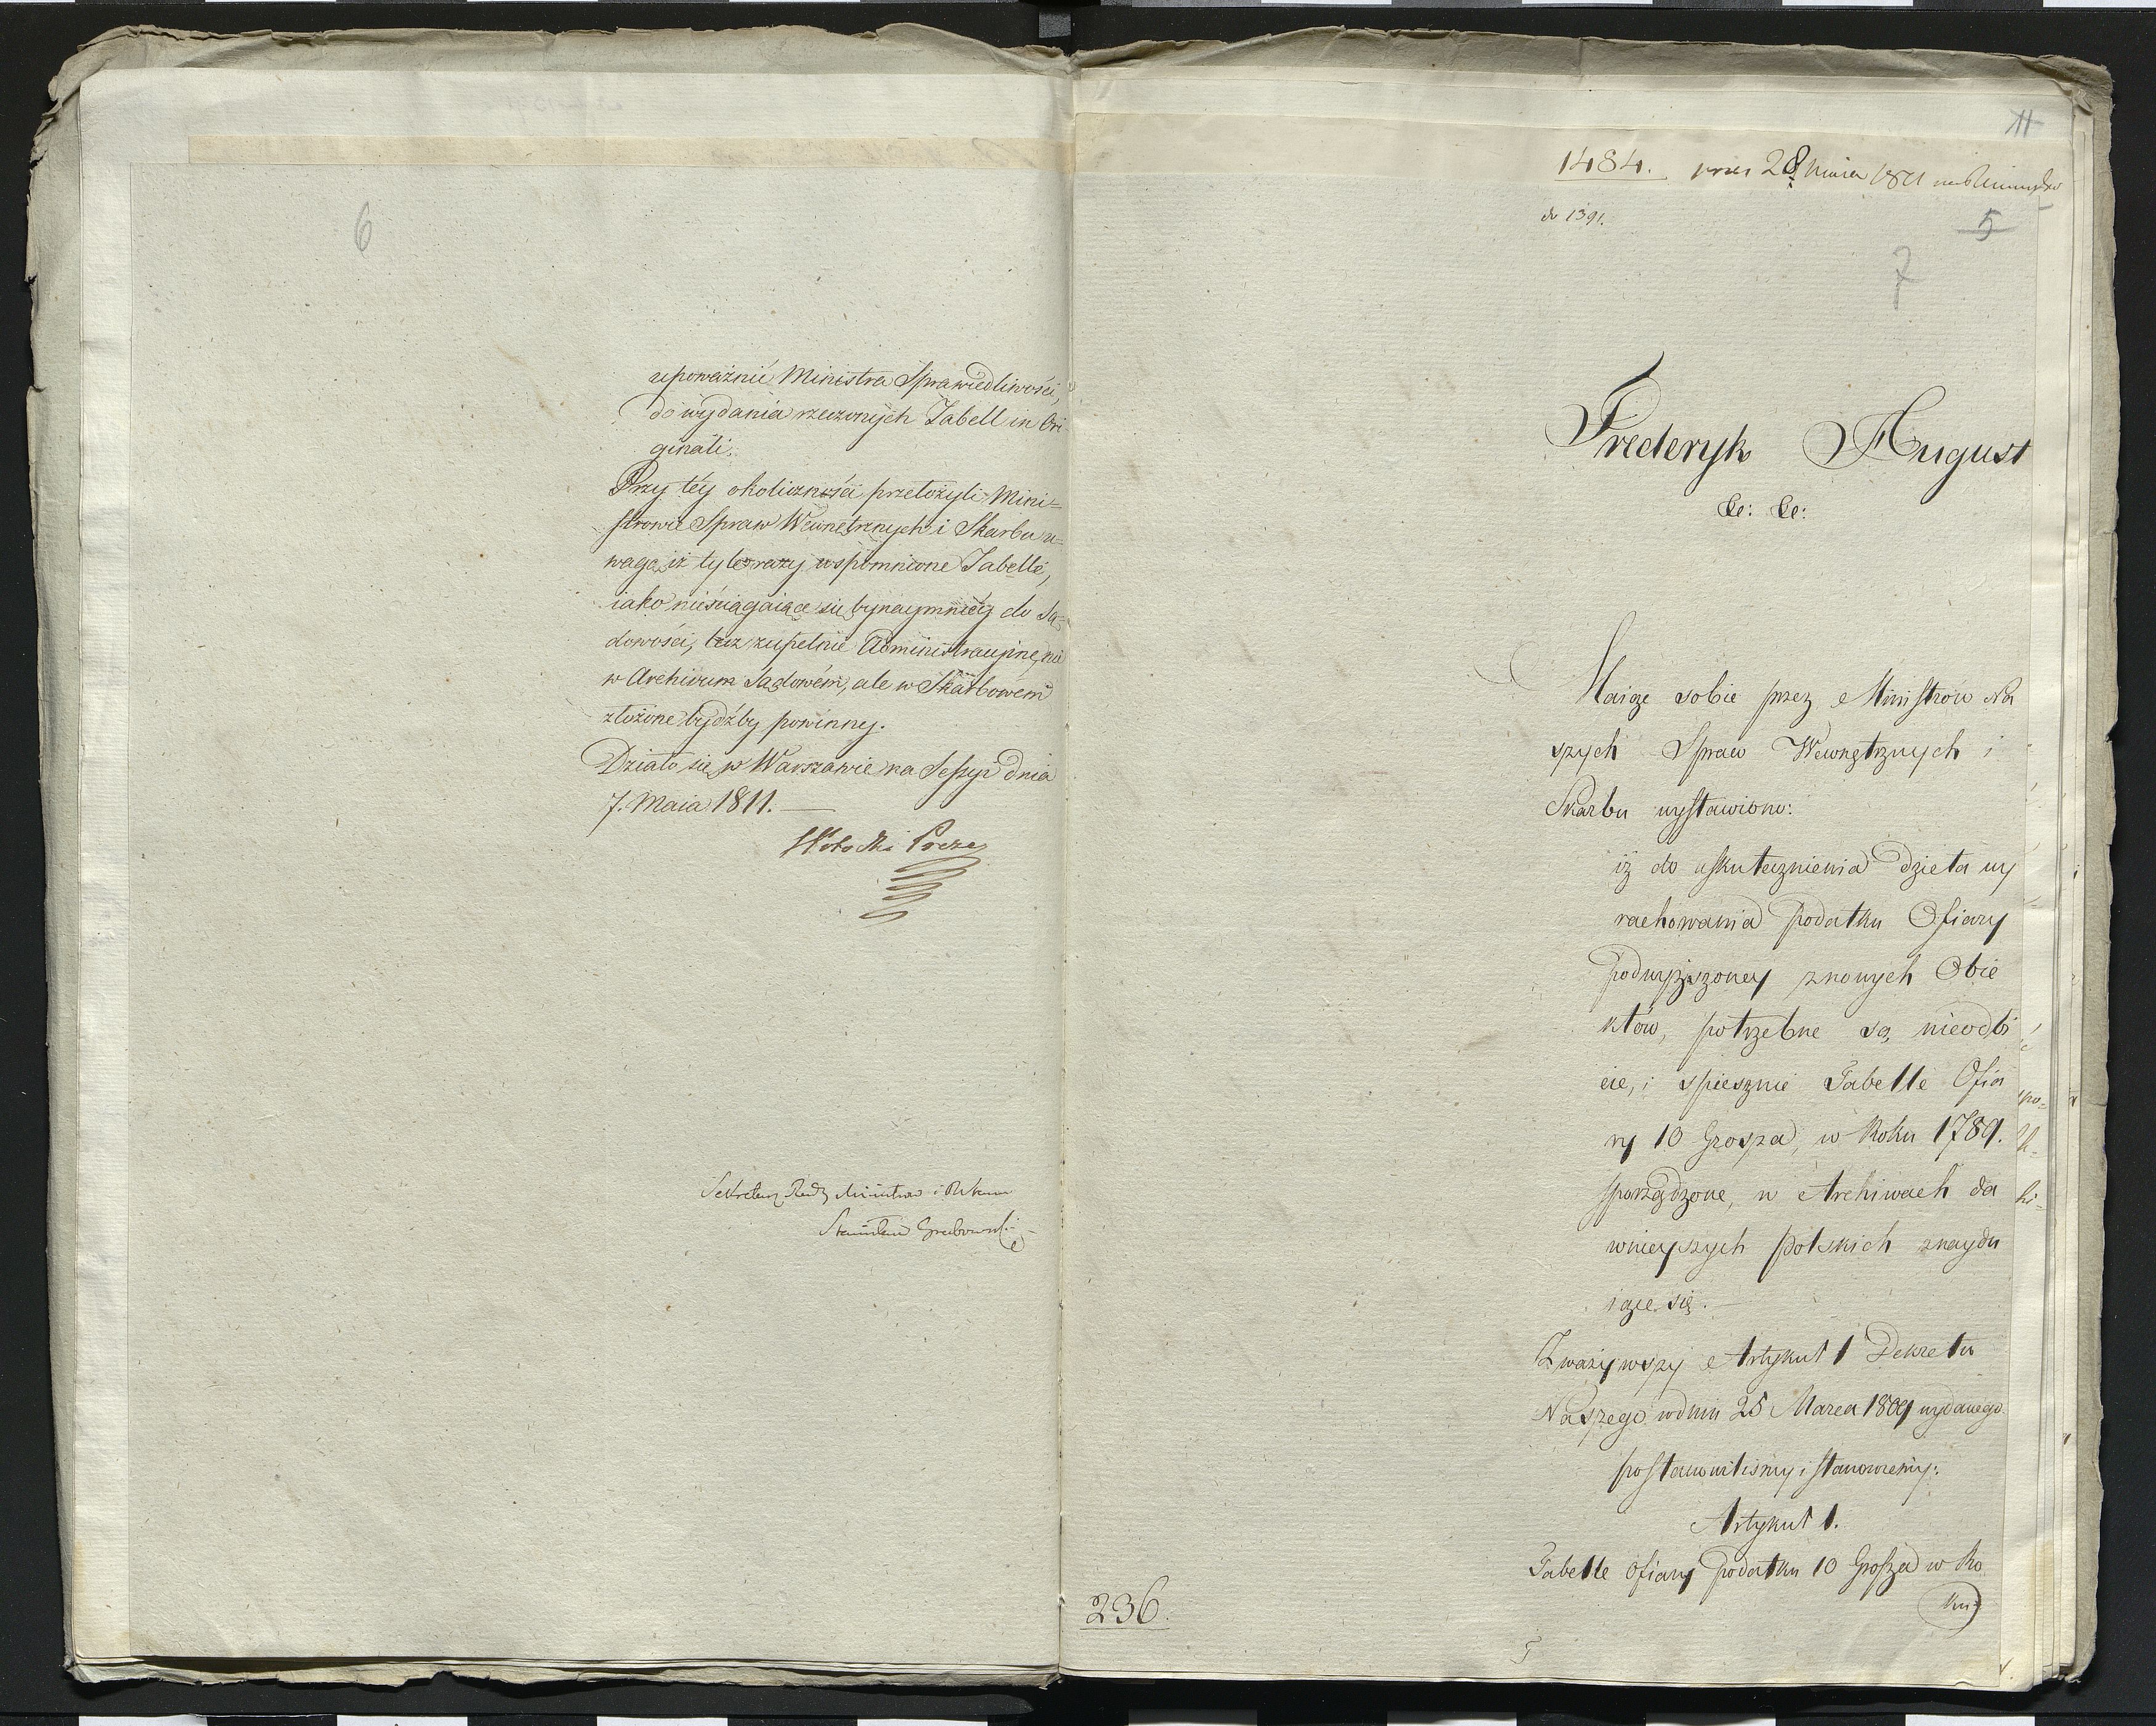 6
upoważnić Ministra Sprawiedliwości,
do wydania rzeczonych Tabell in Ori
ginali.
Przy téy okoliczności przełożyli Mini-
strowie Spraw Wewnętrznych i Skarbu u-
wagę, iż tylerazy wspomnione Tabelle,
iako nieściągaiące się bynaymniéy do Są-
dowości, lecz zupełnie Administracyine, nie
w Archivum Sądowém, ale w Skarbowém
złożone bydźby powinny.
Działo się w Warszawie na Sessyi dnia
7. Maia 1811.
Preze
Sekretarz Rady Ministrów i Stanu
Stanisław Grabowski
11
1484. 28 1811
do 1391.
5
7
Frederyk August
&c: &c:
Maiąc sobie przez Ministrów Na
szych Spraw Wewnętrznych i
Skarbu wystawiono:
iż do uskutecznienia Dzieła wy
rachowania Podatku Ofiary
Podwyższoney znowych Obie
któw, potrzebne są, nieodbi
cie, i spiesznie Tabelle Ofia
ry 10 Grosza, w Roku 1789.
sporządzone, w Archiwach da
wnieyszych Polskich znaydu
iące się.
Zważywszy Artykuł 1 Dekretu
Naszego w dniu 25 Marca 1809 wydanego
postanowiliśmy i stanowiemy:
Artykuł 1.
Tabelle Ofiary Podatku 10 Grosza w Ro
ku
236.